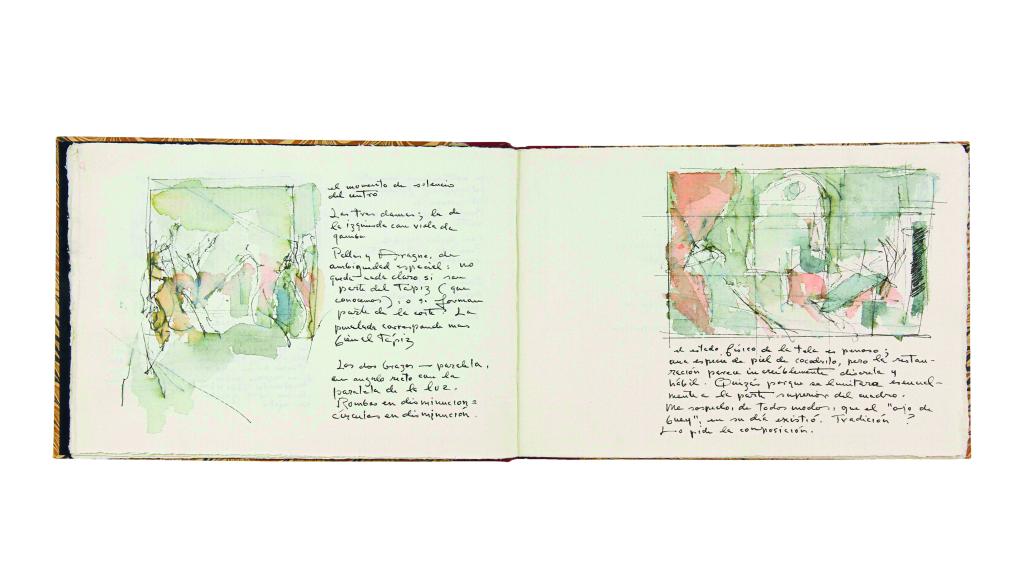 el momento de silencio
del centro
Las tres damas; la de
la izquierda con viola da
gamba
Pallas y Aragne, de
ambigüedad espacial: no
queda nada claro si son
parte del Tápiz (que
conocemos); o si forman
parte de la corte? La
pincelada corresponde mas
bien al Tápiz
Los dos brazos — paralela,
en angulo recto con la
paralela de la luz.
Rombos en disminucion =
círculos en disminucion.
el estado físico de la tela es penoso;
una especie de piel de cocodrilo, pero la restau-
ración parece increíblemente discreta y
hábil. Quizás porque se limitara esencial-
mente a la parte superior del cuadro.
Me sospecho, de Todos modos, que el "ojo de
buey", en su día existió. Tradición ?
Lo pide la composición.